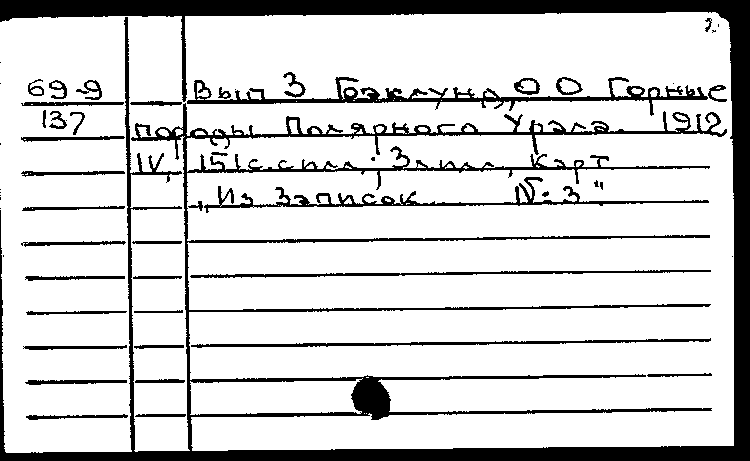 2.
69-9 Вып 3 Бэклунд, О О. Горные
137 породы Полярного Урала. 1912
IV, 151 с. с илл.; 3 л илл, карт
„Из записок... № 3"